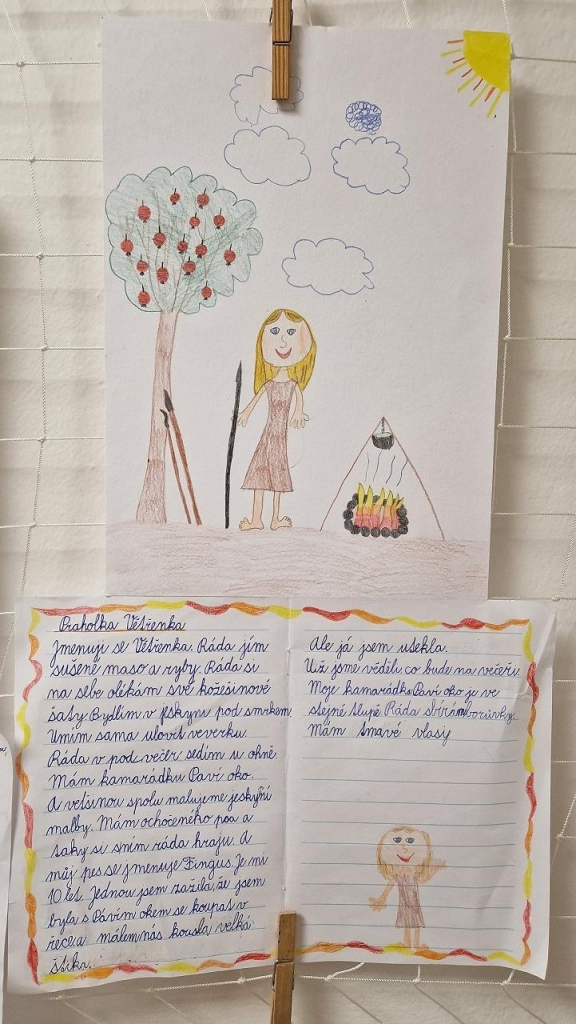 Praholka Větřenka
Jmenuji se Větřenka. Ráda jím
sušené maso a ryby. Ráda si
na sebe olékám své kožešinové
šaty. Bydlím v jeskyni pod smrkem.
Umím sama ulovit veverku.
Ráda v pod večer sedím u ohně.
Mám kamarádku Paví oko.
A vetšinou spolu malujeme jeskyňí
malby. Mám ochočeného psa a
taky si sním ráda hraju. A
můj pes se jmenuje Fingus. Je mi
10 let. Jednou jsem zažila, že jsem
byla s Pávím okem se koupat v
řece a málem nás kousla velká
štika.
Ale já jsem utekla.
Už jsme věděli, co bude na večeři.
Moje kamarádka Paví oko je ve
stejné tlupě. Ráda sbírám borůvky.
Mám tmavé vlasy